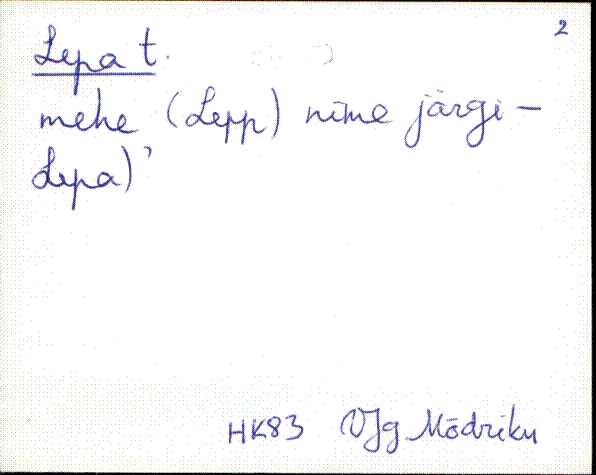 2
Lepa t.
mehe (Lepp) nime järgi –
Lepa)'
HK83 VJg Mõdriku